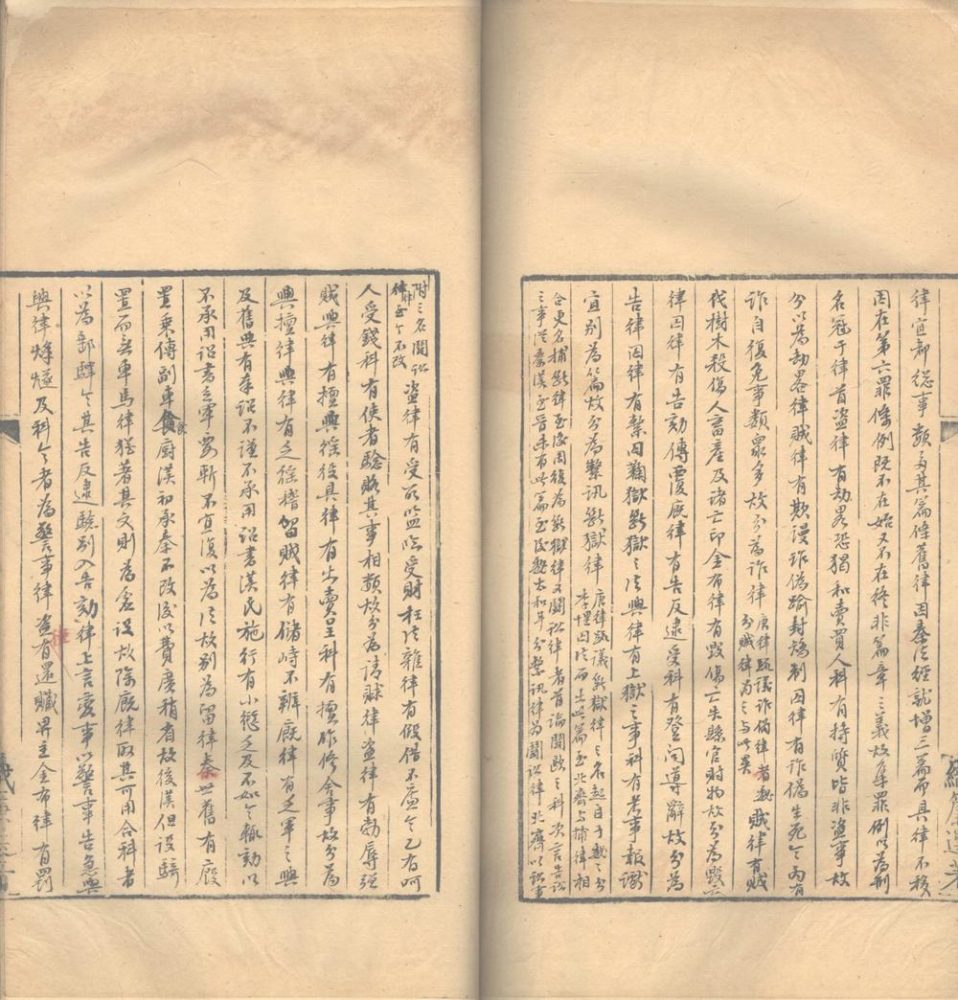 律宜都總事類多其篇條舊律因秦法經就增三篇而具律不移
因在第六罪條例既不在始又不在終非篇章之義故集罪例以為刑
名冠于律首盜律有劫畧恐猲和賣買人科有持質皆非盜事故
分以為劫畧律賊律有欺謾詐偽踰封矯制囚律有詐偽生死令丙有
詐自復免事類眾多故分為詐律唐律疏議詐偽律者魏分賊律為之与此異賊律有賊
伐樹木殺傷人畜產及諸亡印金布律有毀傷亡失縣官財物故分為毀亡
律囚律有告劾傳覆廄律有告反逮受科有登聞導辭故分為
告律囚律有繫囚鞫獄斷獄之法興律有上獄之事科有考事報讞
宜別為篇故分為繫訊斷獄律唐律疏議斷獄律之名起自于魏之分李悝囚法而出此篇至北齊与捕律相
合更名捕斷律至後周復為斷獄律又鬬訟律者首論鬬歐之科次言告訟
之事從秦漢至晉未有此篇至後魏太和年分繫訊律為鬬訟律北齊以訟事
附之名鬬訟律至今不改盜律有受所監臨受財枉法雜律有假借不廉令乙有呵
人受錢科有使者驗賂其事相類故分為請賕律盜律有勃辱強
賊興律有擅興徭役具律有出賣呈科有擅作修舍事故分為
興擅律興律有乏徭稽留賊律有儲峙不辦廄律有乏軍之興
及舊典有奉詔不謹不承用詔書漢氏施行有小愆乏及不如令輒劾以
不承用詔書乏軍要斬不宜復以為法故別為留律秦世舊有廄
置乘傳副車食廚漢初承秦不改後以費廣稍省故後漢但設騎
置而無車馬律猶著其文則為虛設故除廄律取其可用合科者
以為郵驛令其告反逮驗別入告劾律上言變事以警事告急與
興律烽燧及科令者為警事律盜有還贓畀主金布律有罰